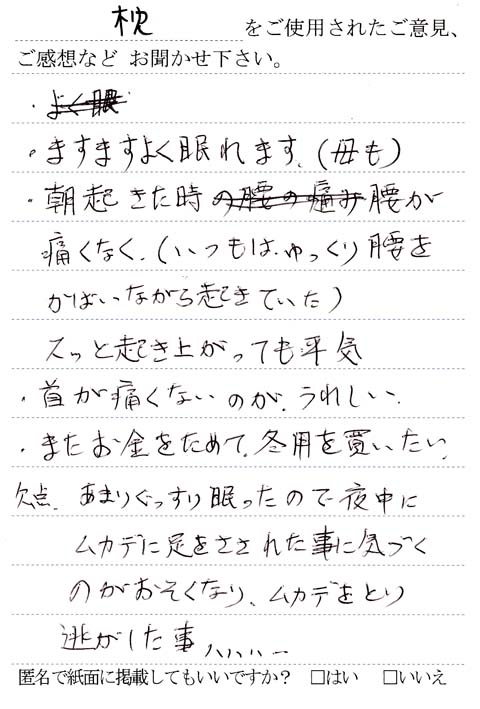 枕 をご使用されたご意見、
ご感想など お聞かせ下さい。
・よく眠
・ますますよく眠れます、(母も)
・朝起きた時の腰の痛み腰が
痛くなく、(いつもは、ゆっくり腰を
かばいながら起きていた)
スッと起き上がっても平気
・首が痛くないのが、うれしい、
・またお金をためて、冬用を買いたい、
欠点、あまりぐっすり眠ったので夜中に
ムカデに足をさされた事に気づく
のがおそくなり、ムカデをとり
逃がした事、、、、、
匿名で紙面に掲載してもいいですか? □はい □いいえ